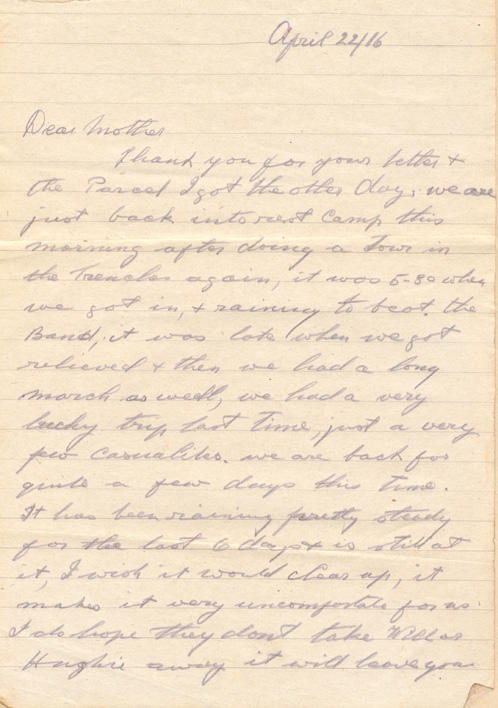 April 22/16
Dear Mother
Thank you for your letter +
the Parcel I got the other day, we are
just back into rest Camp this
morning after doing a Tour in
the Trenches again, it was 5-30 when
we got in, + raining to beat the
Band, it was late when we got
relieved + then we had a long
march as well, we had a very
lucky trip last time, just a very
few Casualites. we are back for
quite a few days this time.
It has been raining pretty steady
for the last 6 days + is still at
it, I wish it would clear up, it
makes it very uncomfortable for us.
I do hope they dont take Will or
Hughie away it will leave you